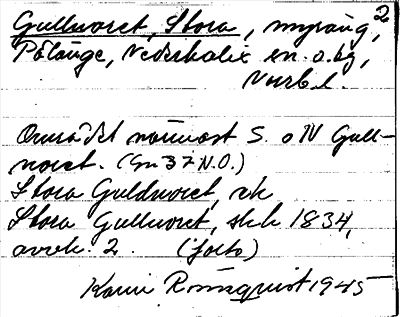 Gullnoret, Stora, myräng, 2
Pålänge, Nederkalix sn. o. bg,
Norrb. l.
Området närmast S. o N Gull-
noret. (Gn 37 N.O.)
Stora Guldnoret, ek
Stora Gullnoret, skh 1834,
avvh. 2. (foto)
Karin Rönnquist 1945